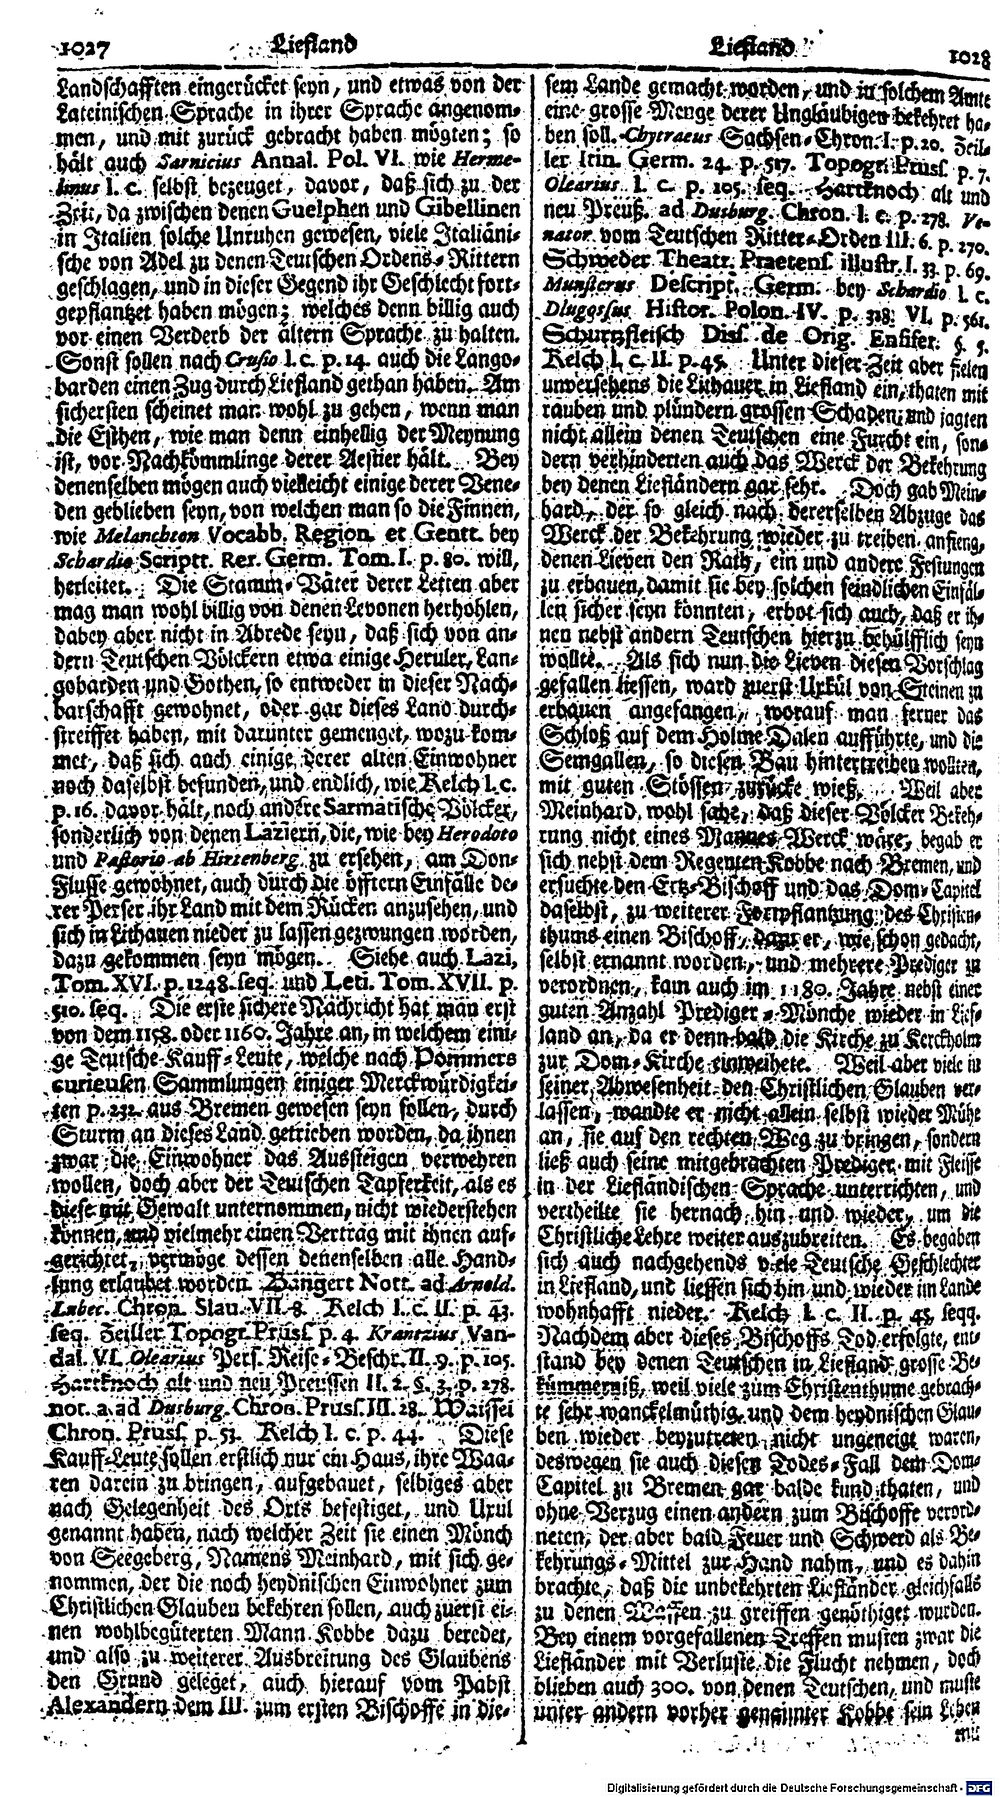 1027 Liefland
Landschafften eingerücket seyn, und etwas von der
Lateinischen Sprache in ihrer Sprache angenom-
men, und mit zurück gebracht haben mögten; so
hält auch Sarnicius Annal. Pol. VI. wie Herme-
linus l. c. selbst bezeuget, davor, daß sich zu der
Zeit, da zwischen denen Guelphen und Gibellinen
in Italien solche Unruhen gewesen, viele Italiäni-
sche von Adel zu denen Teutschen Ordens-Rittern
geschlagen, und in dieser Gegend ihr Geschlecht fort-
gepflantzet haben mögen; welches denn billig auch
vor einen Verderb der ältern Sprache zu halten.
Sonst sollen nach Crusio l. c. p. 14. auch die Lango-
barden einen Zug durch Liefland gethan haben. Am
sichersten scheinet man wohl zu gehen, wenn man
die Esthen, wie man denn einhellig der Meynung
ist, vor Nachkömmlinge derer Aestier hält. Bey
denenselben mögen auch vielleicht einige derer Vene-
den geblieben seyn, von welchen man so die Finnen,
wie Melanchton Vocabb. Region. et Gentt. bey
Schardio Scriptt. Rer. Germ. Tom. I. p. 80. will,
herleitet. Die Stamm-Väter derer Letten aber
mag man wohl billig von denen Levonen herhohlen,
dabey aber nicht in Abrede seyn, daß sich von an-
dern Teutschen Völckern etwa einige Heruler, Lan-
gobarden und Gothen, so entweder in dieser Nach-
barschafft gewohnet, oder gar dieses Land durch-
streiffet haben, mit darunter gemenget, wozu kom-
met, daß sich auch einige derer alten Einwohner
noch daselbst befunden, und endlich, wie Kelch l. c.
p. 16. davor hält, noch andere Sarmatische Völcker,
sonderlich von denen Laziern, die, wie bey Herodoto
und Pastorio ab Hirtenberg zu ersehen, am Don-
Flusse gewohnet, auch durch die öfftern Einfälle de-
rer Perser ihr Land mit dem Rücken anzusehen, und
sich in Lithauen nieder zu lassen gezwungen worden,
dazu gekommen seyn mögen. Siehe auch Lazi,
Tom. XVI. p. 1248. seq. und Leti. Tom. XVII. p.
510. seq. Die erste sichere Nachricht hat man erst
von dem 1158. oder 1160. Jahre an, in welchem eini-
ge Teutsche Kauff-Leute, welche nach Pommers
curieusen Sammlungen einiger Merckwürdigkei-
ten p. 232. aus Bremen gewesen seyn sollen, durch
Sturm an dieses Land getrieben worden, da ihnen
zwar die Einwohner das Aussteigen verwehren
wollen, doch aber der Teutschen Tapferkeit, als es
diese mit Gewalt unternommen, nicht wiederstehen
können, und vielmehr einen Vertrag mit ihnen auf-
gerichtet, vermöge dessen denenselben alle Hand-
lung erlaubet worden. Bangert Nott. ad Arnold.
Lubec. Chron. Slau. VII. 8. Kelch l. c. II. p. 43.
seq. Zeiller Topogr. Pruss. p. 4. Krantzius Van-
dal. VI. Olearius Pers. Reise-Beschr. II. 9. p. 105.
Hartknoch alt und neu Preussen II. 2. §. 3. p. 278.
not. a. ad Dusburg. Chron. Pruss. III. 28. Waissel
Chron. Pruss. p. 53. Kelch l. c. p. 44. Diese
Kauff-Leute sollen erstlich nur ein Haus, ihre Waa-
ren darein zu bringen, aufgebauet, selbiges aber
nach Gelegenheit des Orts befestiget, und Uxul
genannt haben, nach welcher Zeit sie einen Mönch
von Seegeberg, Namens Meinhard, mit sich ge-
nommen, der die noch heydnischen Einwohner zum
Christlichen Glauben bekehren sollen, auch zuerst ei-
nen wohlbegüterten Mann Kobbe dazu beredet,
und also zu weiterer Ausbreitung des Glaubens
den Grund geleget, auch hierauf vom Pabst
Alexandern dem III. zum ersten Bischoffe in die-
Liefland 1028
sem Lande gemacht worden, und in solchem Amte
eine grosse Menge derer Ungläubigen bekehret ha-
ben soll. Chytraeus Sachsen-Chron. I. p. 20. Zeil-
ler Itin. Germ. 24. p. 517. Topogr. Pruss. p. 7.
Olearius l. c. p. 105. seq. Hartknoch alt und
neu Preuß. ad Dusburg. Chron. l. c. p. 278. Ve-
nator vom Teutschen Ritter-Orden III. 6. p. 270.
Schweder Theatr. Praetens. illustr. I. 33. p. 69.
Munsterus Descript. Germ. bey Schardio l. c.
Dlugossus Histor. Polon. IV. p. 318. VI. p. 561.
Schurtzfleisch Diss. de Orig. Ensifer. §. 5.
Kelch l. c. II. p. 45. Unter dieser Zeit aber fielen
unversehens die Lithauer in Liefland ein, thaten mit
rauben und plündern grossen Schaden, und jagten
nicht allein denen Teutschen eine Furcht ein, son-
dern verhinderten auch das Werck der Bekehrung
bey denen Liefländern gar sehr. Doch gab Mein-
hard, der so gleich nach dererselben Abzuge das
Werck der Bekehrung wieder zu treiben anfieng,
denen Lieven den Rath, ein und andere Festungen
zu erbauen, damit sie bey solchen feindlichen Einfäl-
len sicher seyn könnten, erbot sich auch, daß er ih-
nen nebst andern Teutschen hierzu behülfflich seyn
wollte. Als sich nun die Lieven diesen Vorschlag
gefallen liessen, ward zuerst Urkül von Steinen zu
erbauen angefangen, worauf man ferner das
Schloß auf dem Holme Dalen aufführte, und die
Semgallen, so diesen Bau hintertreiben wollten,
mit guten Stössen zurücke wieß. Weil aber
Meinhard wohl sahe, daß dieser Völcker Bekeh-
rung nicht eines Mannes Werck wäre, begab er
sich nebst dem Regenten Kobbe nach Bremen, und
ersuchte den Ertz-Bischoff und das Dom-Capitel
daselbst, zu weiterer Fortpflantzung des Christen-
thums einen Bischoff, dazu er, wie schon gedacht,
selbst ernannt worden, und mehrere Prediger zu
verordnen, kam auch im 1180. Jahre nebst einer
guten Anzahl Prediger-Mönche wieder in Lief-
land an, da er denn bald die Kirche zu Kerckholm
zur Dom-Kirche einweihete. Weil aber viele in
seiner Abwesenheit den Christlichen Glauben ver-
lassen, wandte er nicht allein selbst wieder Mühe
an, sie auf den rechten Weg zu bringen, sondern
ließ auch seine mitgebrachten Prediger mit Fleisse
in der Liefländischen Sprache unterrichten, und
vertheilte sie hernach hin und wieder, um die
Christliche Lehre weiter auszubreiten. Es begaben
sich auch nachgehends viele Teutsche Geschlechter
in Liefland, und liessen sich hin und wieder im Lande
wohnhafft nieder. Kelch l. c. II. p. 45. seqq.
Nachdem aber dieses Bischoffs Tod erfolgte, ent-
stand bey denen Teutschen in Liefland grosse Be-
kümmerniß, weil viele zum Christenthume gebrach-
te sehr wanckelmüthig, und dem heydnischen Glau-
ben wieder beyzutreten nicht ungeneigt waren,
deswegen sie auch diesen Todes-Fall dem Dom-
Capitel zu Bremen gar balde kund thaten, und
ohne Verzug einen andern zum Bischoffe verord-
neten, der aber bald Feuer und Schwerd als Be-
kehrungs-Mittel zur Hand nahm, und es dahin
brachte, daß die unbekehrten Liefländer gleichfalls
zu denen Waffen zu greiffen genöthiget wurden.
Bey einem vorgefallenen Treffen musten zwar die
Liefländer mit Verluste die Flucht nehmen, doch
blieben auch 300. von denen Teutschen, und muste
unter andern vorher genannter Kobbe sein Leben
mit
Digitalisierung gefördert durch die Deutsche Forschungsgemeinschaft - DFG